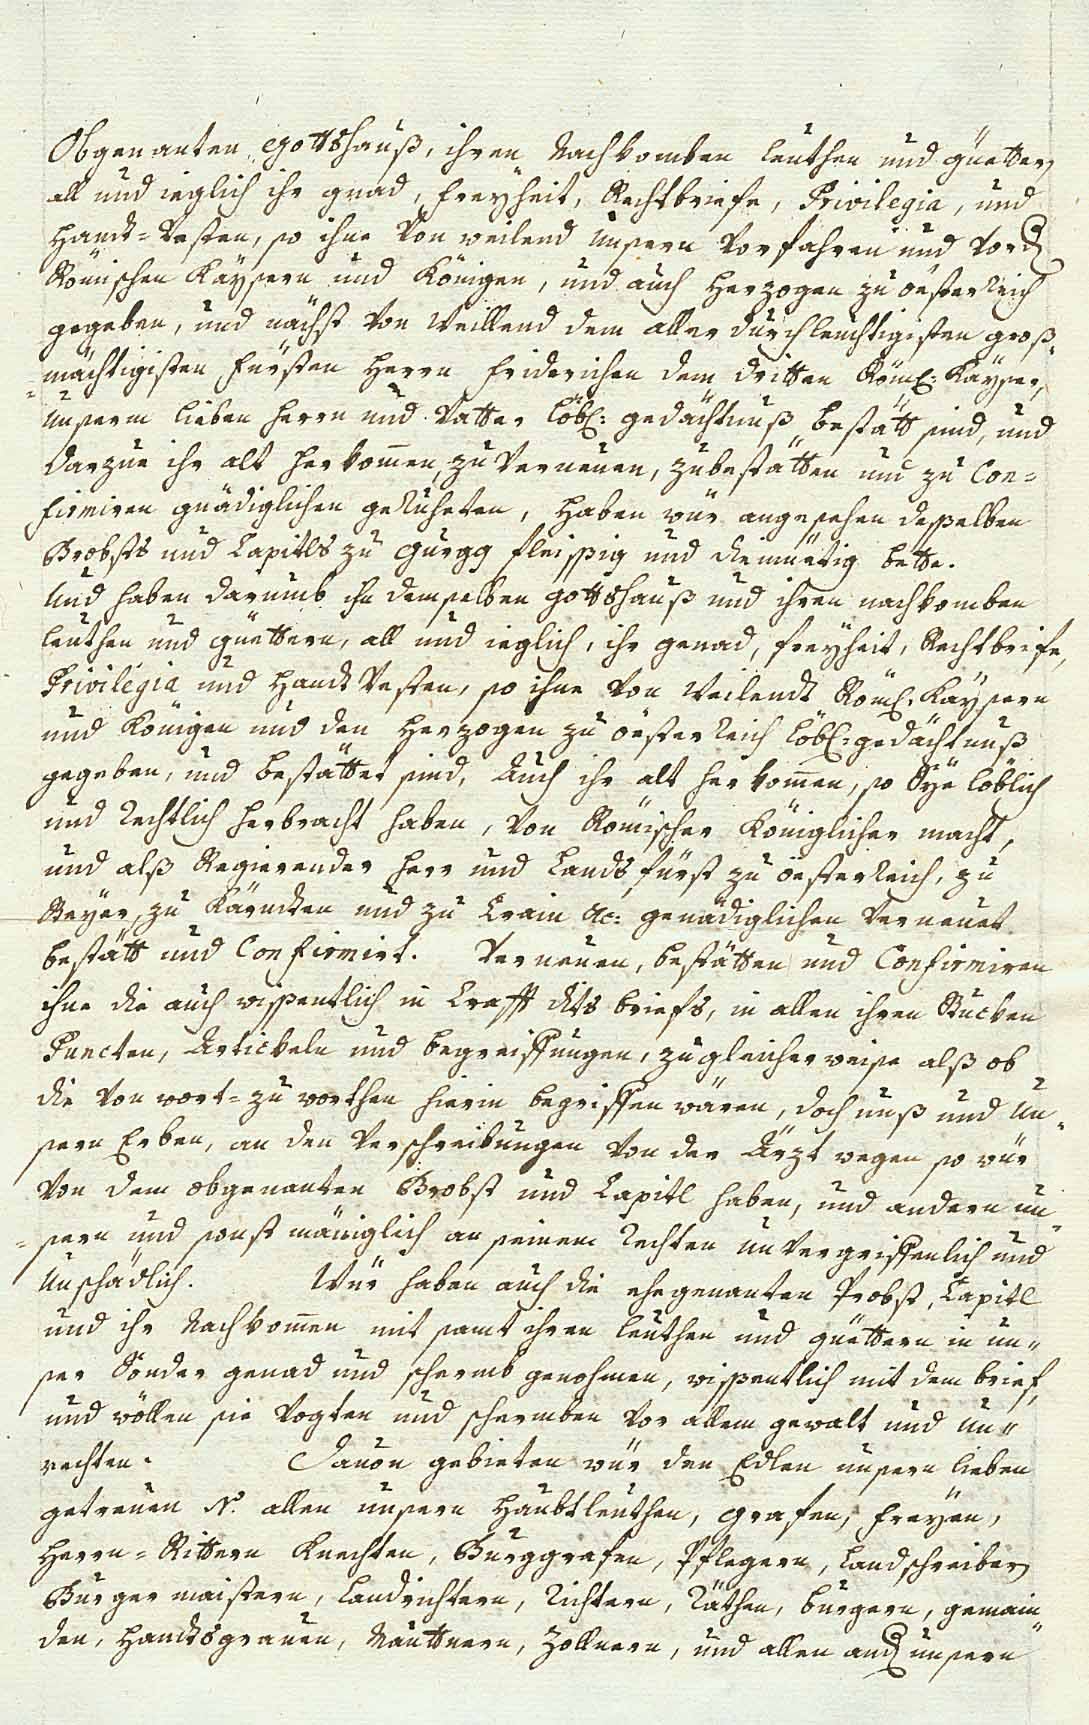 Obgenanten Gottshauß, ihren Nachkomben leuthen und güettern,
all und ieglich ihr gnad, freyheit, Rechtbriefe, Privilegia, und
Handt-Vesten, so ihne Von weilend Unsern Vorfahren und Vord.
Römischen Kaÿsern und Königen, und auch Herzogen zu Oësterleich
gegeben, und nächst Von Weillend dem allerdurchleuchtigisten groß-
mächtigisten Fürsten Herrn Friderichen dem dritten Röml: Kaÿser,
Unserm lieben Herrn und Vatter löbl: gedächtnuß bestätt sind, und
darzue ihr alt herkom̄en, zu Verneuen, zubestätten und zu Con-
firmiren gnädiglichen geruheten, Haben wür angesehen desselben
Brobsts und Capitls zu Gurgg fleissig und diemüetig bette.
Und haben darumb ihn demselben gottshauß und ihren nachkomben
leuthen und güettern, all und ieglich, ihr genad, freÿheit, Rechtbriefe,
Privilegia und Handt Vesten, so ihne Von Weilendt Röml. Kaÿsern
und Königen und den Herzogen zu Oësterleich löbl: gedächtnuß
gegeben, und bestättet sind, Auch ihr alt herkom̄en, so Sÿe löblich
und rechtlich herbracht haben, Von Römischer Königlicher macht,
und alß Regierender Herr und Landsfürst zu Oësterleich, zu
Steÿer, zu Kärndten und zu Crain &c: genädiglichen Verneuet
bestätt und Confirmirt. Verneuen, bestätten und Confirmiren
ihne die auch wissentlich in Crafft dits briefs, in allen ihren Stucken
Puncten, Articheln und begreiffungen, zugleicherweise alß ob
die Von wort- zu worthen hierin begriffen wären, doch unß und Un-
sern Erben, an den Verschreibungen Von der Ärzt wegen so wür
Von dem obgenanten Brobst und Capitl haben, und andern un-
sern und sonst mäniglich an seinem rechten unvergriffenlich und
Unschädlich. Wür haben auch die ehegenanten Probst, Capitl
und ihr Nachkom̄en mit samt ihren leuthen und güettern in un-
ser Sonder genad und schermb genohmen, wissentlich mit dem brief,
und wöllen sie Vogten und schermben Vor allem gewalt und un-
rechten. Dauon gebieten wür den Edlen unsern lieben
getreuen N. allen unsern Haubtleuthen, Grafen, Freÿen,
Herrn- Rittern Knechten, Burggrafen, Pflegern, Landschreibern
Burgermaistern, Landrichtern, Richtern, Räthen, burgern, gemain-
den, Handtsgrauen, Mauttnern, Zollnern, und allen and. unsern